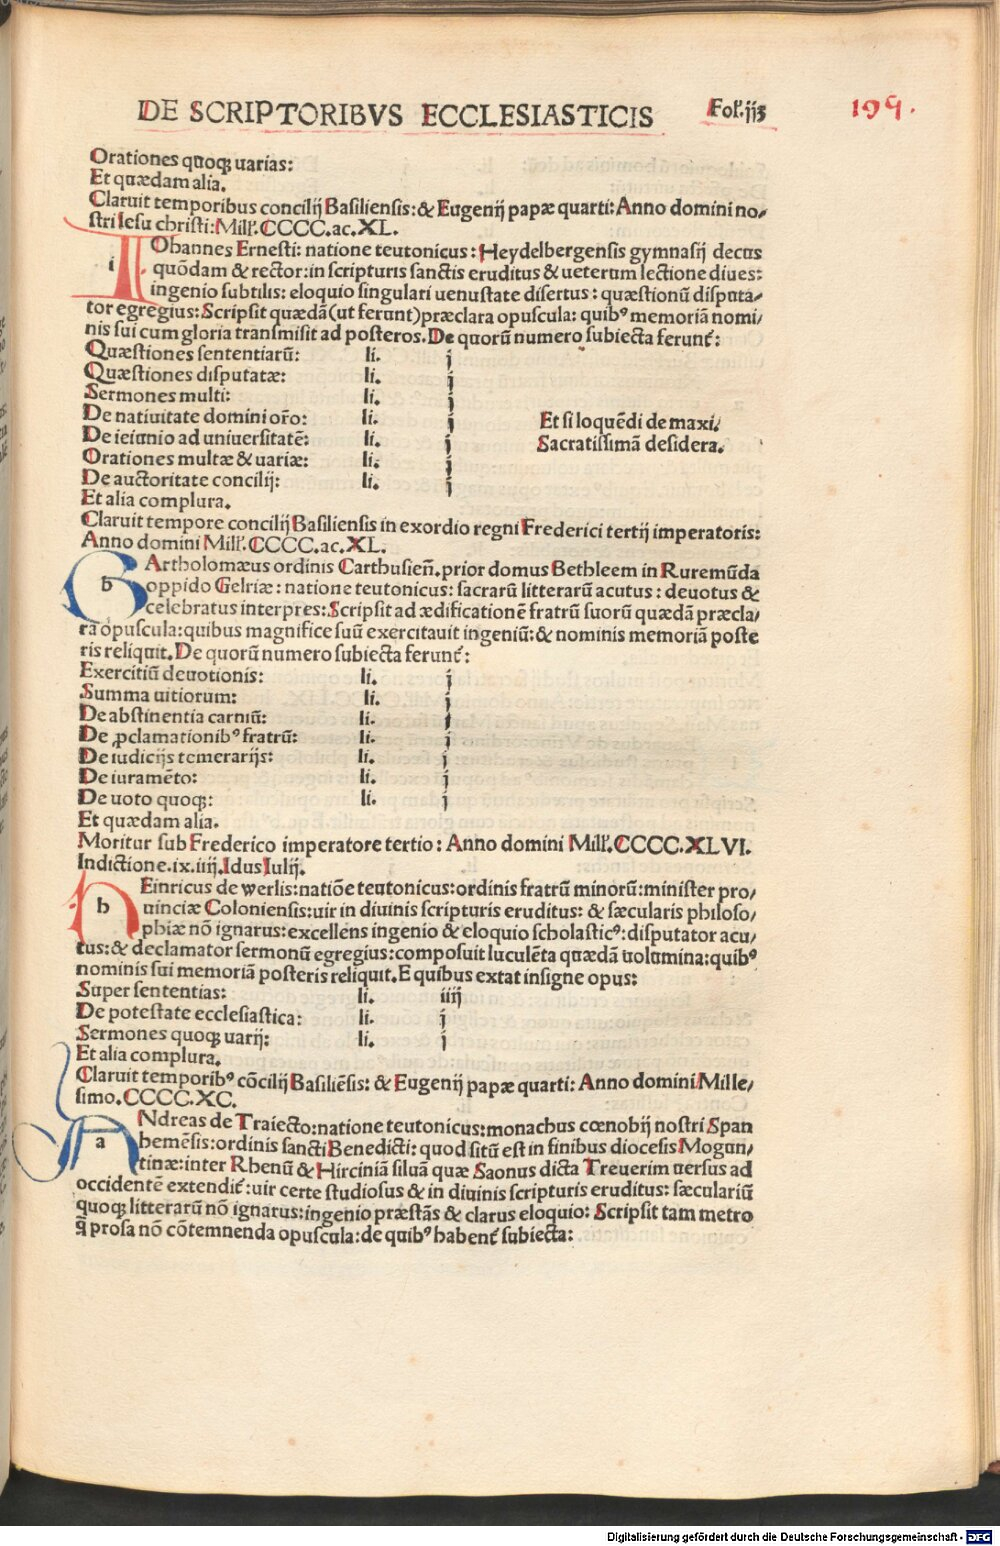 DE SCRIPTORIBVS ECCLESIASTICIS Fol. 113 199.
Orationes quoq; uarias:
Et quædam alia.
Claruit temporibus concilij Basiliensis: & Eugenij papæ quarti: Anno domini no/
stri Iesu christi: Mill'. CCCC. ac. XL.
i IOhannes Ernesti: natione teutonicus: Heydelbergensis gymnasij decus
quōdam & rector: in scripturis sanctis eruditus & ueterum lectione diues:
ingenio subtilis: eloquio singulari uenustate disertus: quæstionū disputa/
tor egregius: Scripsit quædā (ut ferunt) præclara opuscula: quibꝰ memoriā nomi/
nis sui cum gloria transmisit ad posteros. De quorū numero subiecta ferunt̄:
Quæstiones sententiarū: li. i
Quæstiones disputatæ: li. i
Sermones multi: li. i
De natiuitate domini or̄o: li. i Et si loquēdi de maxi/
De ieiunio ad uniuersitatē: li. i Sacratissimā desidera.
Orationes multæ & uariæ: li. i
De auctoritate concilij: li. i
Et alia complura.
Claruit tempore concilij Basiliensis in exordio regni Frederici tertij imperatoris:
Anno domini Mill'. CCCC. ac. XL.
b BArtholomæus ordinis Carthusień. prior domus Bethleem in Ruremūda
oppido Gelriæ: natione teutonicus: sacrarū litterarū acutus: deuotus &
celebratus interpres: Scripsit ad ædificationē fratrū suorū quædā præcla/
ra opuscula: quibus magnifice suū exercitauit ingeniū: & nominis memoriā poste
ris reliquit. De quorū numero subiecta ferunt̄:
Exercitiū deuotionis: li. i
Summa uitiorum: li. i
De abstinentia carniū: li. i
De ꝓclamationibꝰ fratrū: li. i
De iudicijs temerarijs: li. i
De iuramēto: li. i
De uoto quoq;: li. i
Et quædam alia.
Moritur sub Frederico imperatore tertio: Anno domini Mill'. CCCC. XLVI.
Indictione. ix. iiij. Idus Iulij.
h HEinricus de werlis: natiōe teutonicus: ordinis fratrū minorū: minister pro/
uinciæ Coloniensis: uir in diuinis scripturis eruditus: & sæcularis philoso/
phiæ nō ignarus: excellens ingenio & eloquio scholasticꝰ: disputator acu/
tus: & declamator sermonū egregius: composuit luculēta quædā uolumina: quibꝰ
nominis sui memoriā posteris reliquit. E quibus extat insigne opus:
Super sententias: li. iiij
De potestate ecclesiastica: li. i
Sermones quoq; uarij: li. i
Et alia complura.
Claruit temporibꝰ cōcilij Basiliēsis: & Eugenij papæ quarti: Anno domini Mille/
simo. CCCC. XC.
a ANdreas de Traiecto: natione teutonicus: monachus cœnobij nostri Span
hemēsis: ordinis sancti Benedicti: quod sitū est in finibus diocesis Mogun/
tinæ: inter Rhenū & Hirciniā siluā quæ Saonus dicta Treuerim uersus ad
occidentē extendit̄: uir certe studiosus & in diuinis scripturis eruditus: sæculariū
quoq; litterarū nō ignarus: ingenio præstās & clarus eloquio: Scripsit tam metro
q̄ prosa nō cōtemnenda opuscula: de quibꝰ habent̄ subiecta:
Digitalisierung gefördert durch die Deutsche Forschungsgemeinschaft - DFG